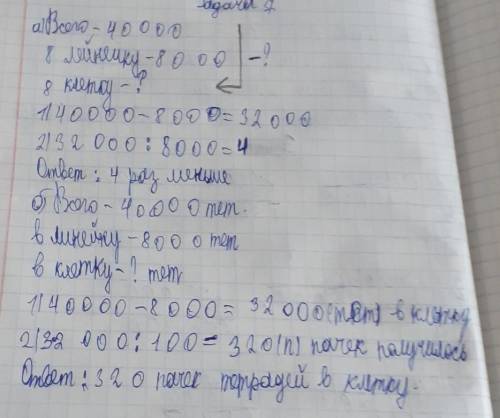 задача 7
а) Всего - 40000
в лейнейку - 8000 - ?
в клетку - ?
1) 40000 - 8000 = 32000
2) 32 000 : 8000 = 4
Ответ : 4 раз меньше
б) Всего - 40000 тет.
в линейку - 8000 тет
в клетку - ? тет
1) 40000 - 8000 = 32000 (тет) в клетку
2) 32 000 : 100 = 320 (п) пачек получилось
Ответ : 320 пачек тетрадей в клетку.